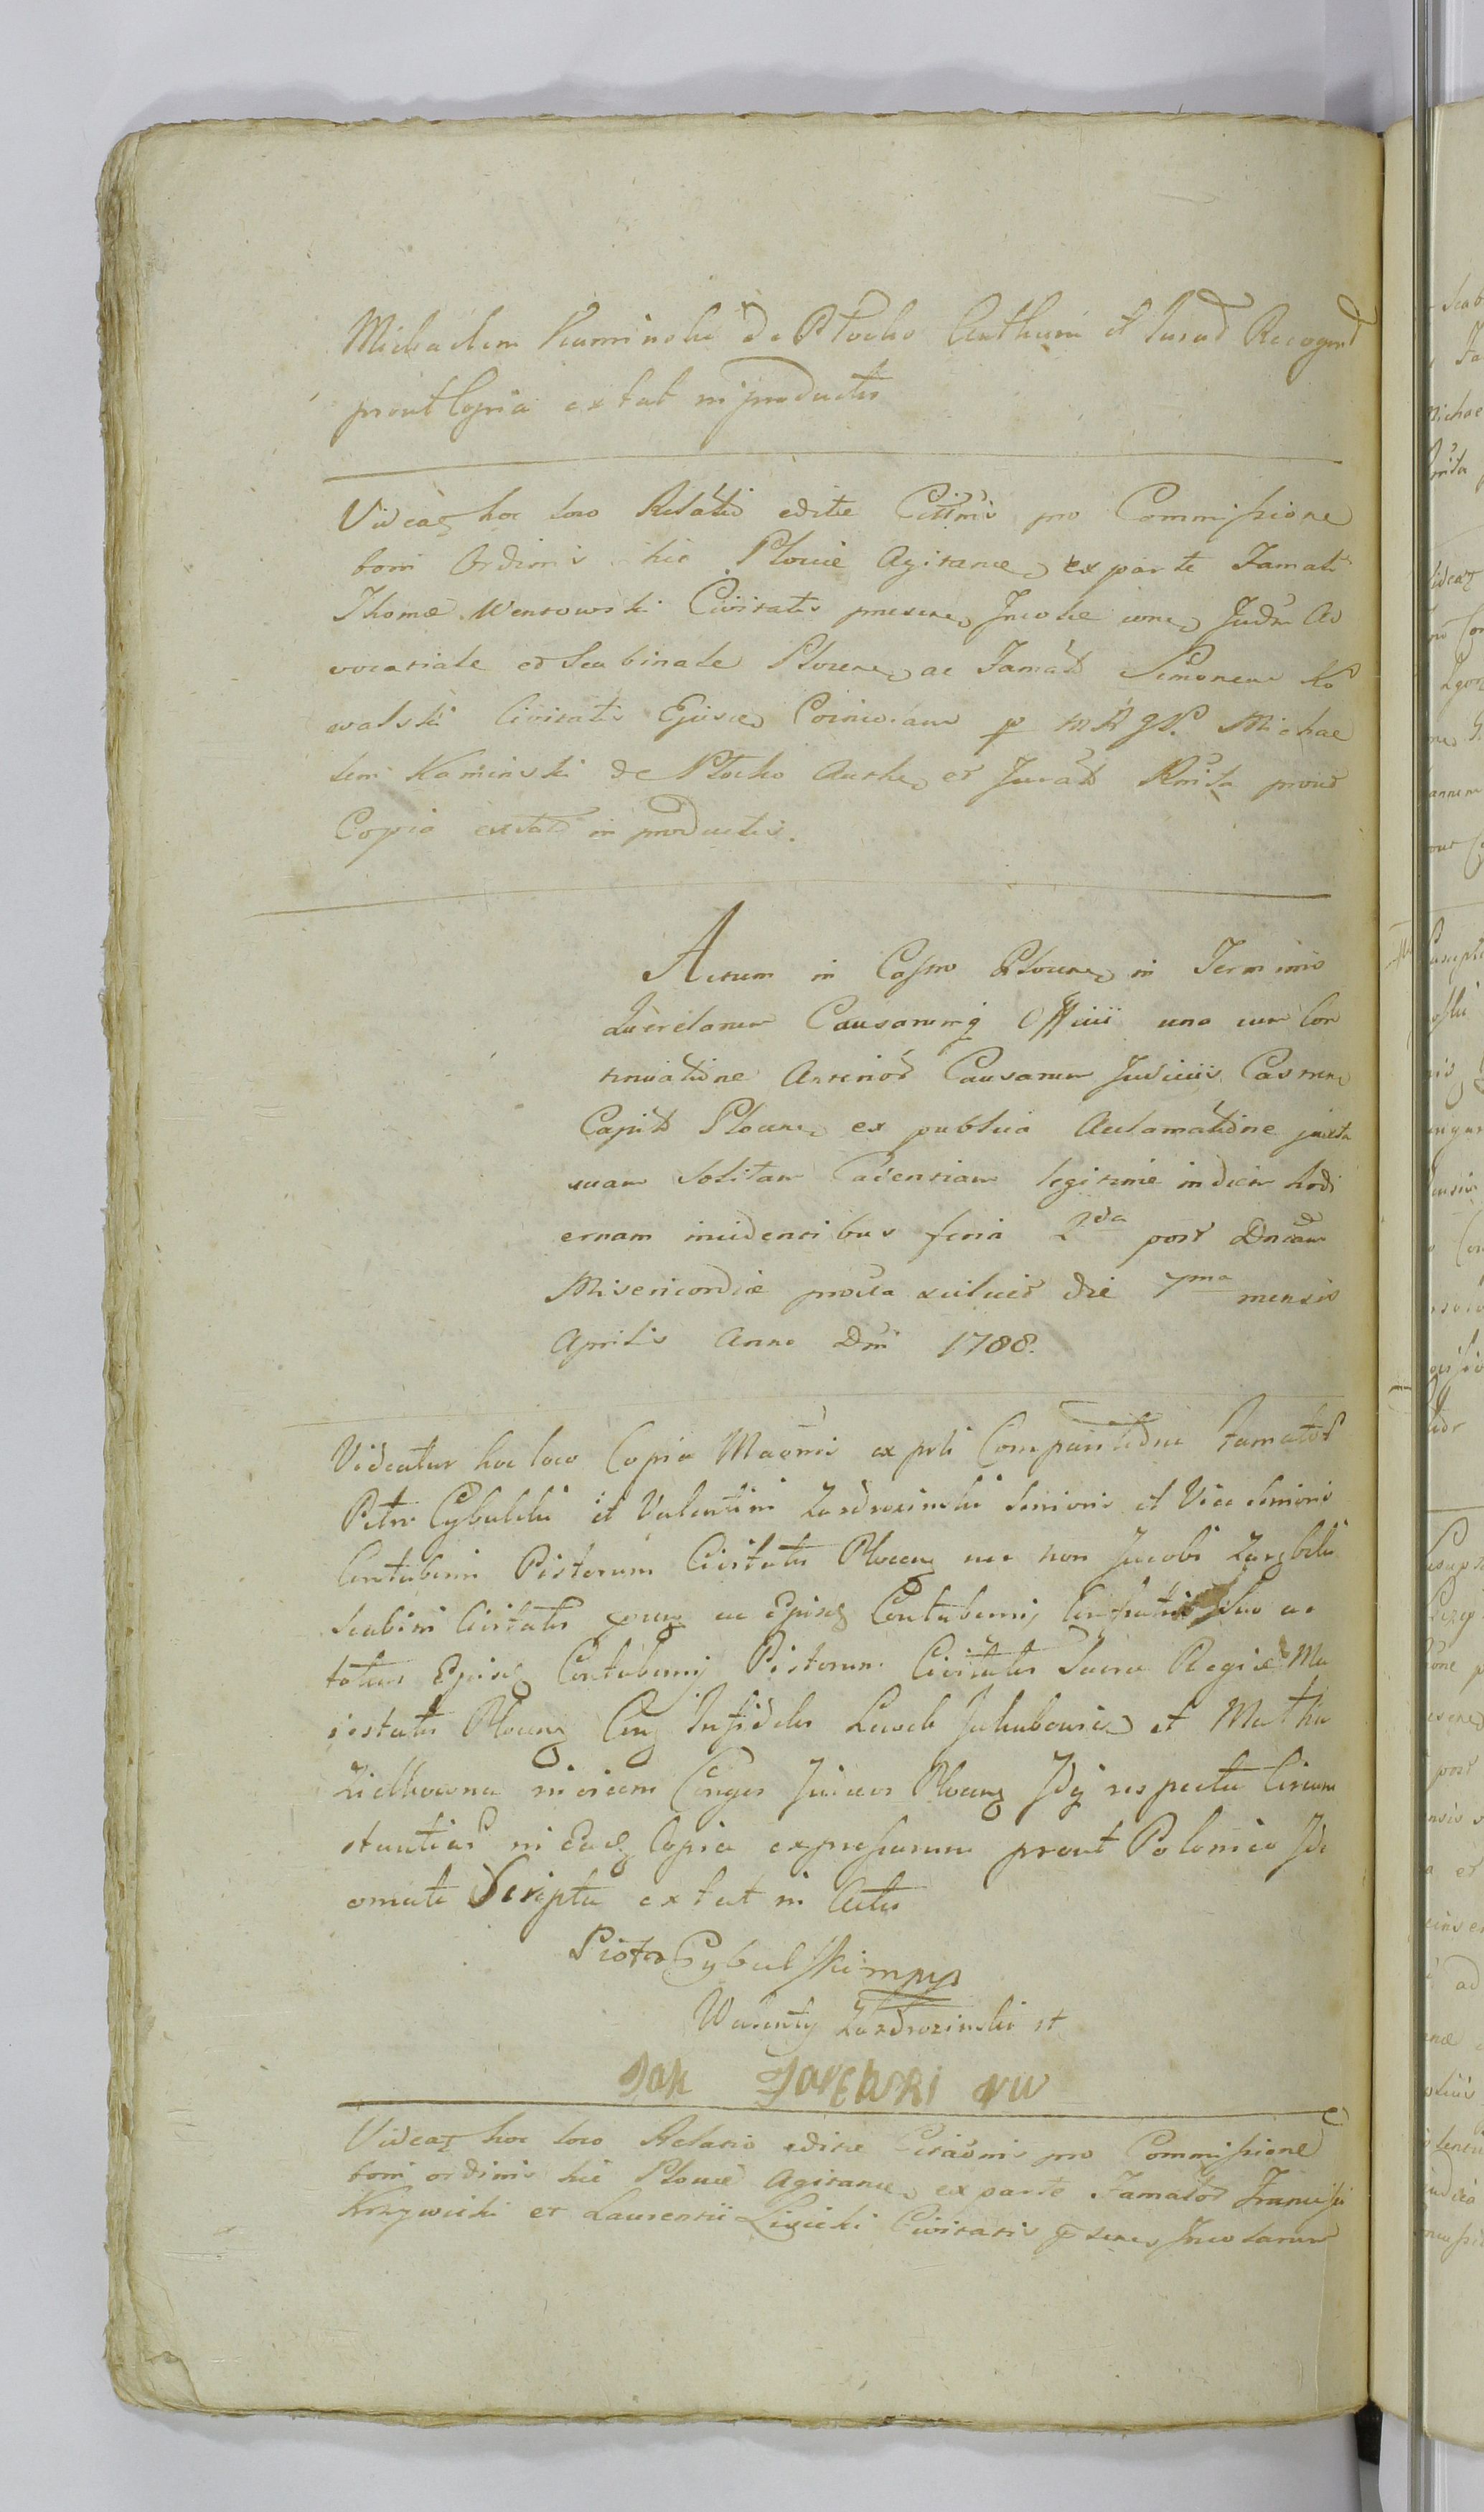 Michaelem Kaminski de Płocko Authum et Jurad Recognd
prout Copia extat in productis
Videaʒ hoc loco Relatio editæ Cittñis pro Commissione
boni Ordinis hic Plociæ Agitanæ ex parte Famati
Thomæ Wensowski Civitatis præsens Incolæ Judm Ad
vocatiale et Scabinale Plocens ac Famatt Simonem Ko
walski Civitatis Ejusd Coincolam p Michae
lem Kaminski de Płocko Authen et Juratt Rñita prout
Copia extat in productis.
Actum in Castro Plocens in Terminis
Querelarum Causarumq Officii una cum Con
tinuatione Anterior Causarum Judiciis Castren
Capitt Plocens ex publica Acclamatione juxta
suam solitam Cadentiam legitime in diem hodi
ernam incidentibus feria 2da post Dnicam
Misericordiæ proxa scilicet die 7ma mensis
Aprilis Anno Dni 1788.
Videatur hoc loco Copia Manñi ex pti Comparitione Famator
Petri Cybulski et Valentini Zazdrozinski Senioris et Vice Senioris
Contubernij Pistorum Civitatis Plocens nec non Jacobi Zarębski
Scabini Civitatis ac Ejusd Contubernij Suo ac
totius Ejusd Contubernij Pistorum Civitatis Sacræ Regiæ Ma
jestatis Plocens Infideles Lewek Jakubowicz et Matka
Zielkowna invicem Conges Judæos Plocens Idq respectu Circum
stantiar in Ead Copia expressarum prout Polonico Idi
omate Scripta extat in Actis
Piotr Cybulski mpp
Walenty Zazdrozinski
Jak Zarębski
Videaʒ hoc loco Relatio editæ Citaōnis pro Commissione
boni ordinis hic Plociæ Agitanæ ex parte Famator Francisci
Krzywicki et Laurentii Lisicki Civitatis psens Incolarum